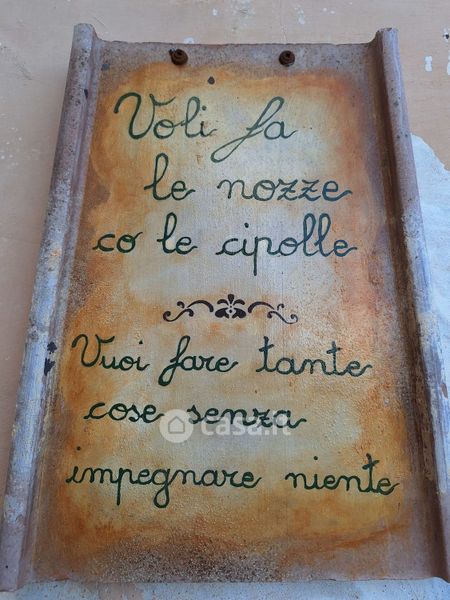 Voli fa
le nozze
co le cipolle
Vuoi fare tante
cose senza
casa.it
impegnare niente